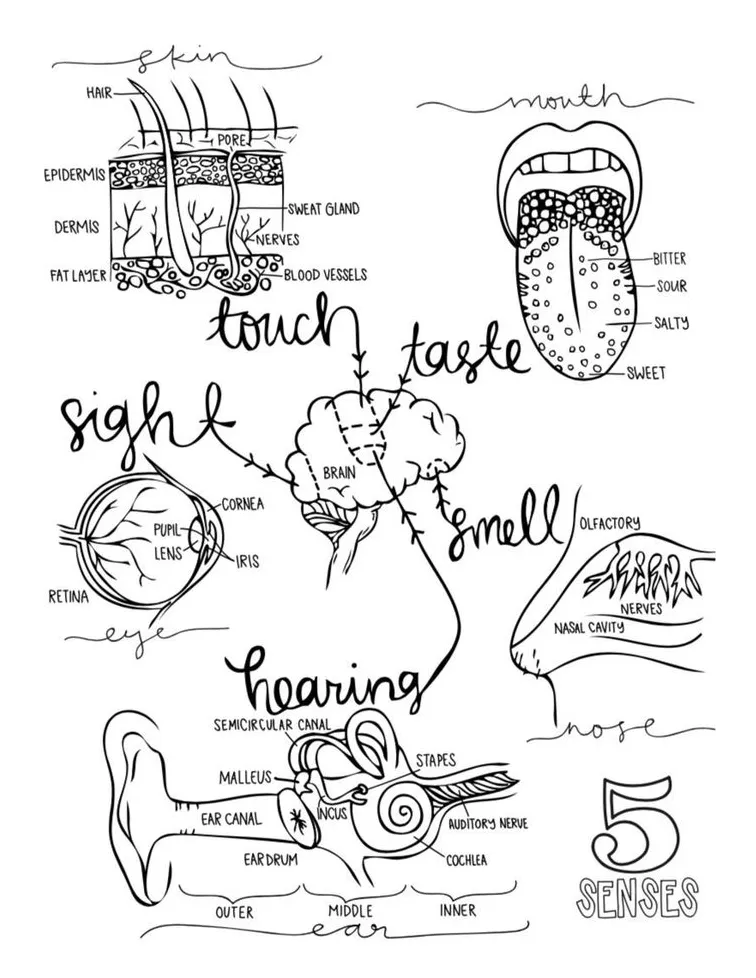 skin
HAIR
PORE
EPIDERMIS
SWEAT GLAND
DERMIS
NERVES
FAT LAYER
BLOOD VESSELS
mouth
BITTER
SOUR
SALTY
SWEET
touch
taste
sight
BRAIN
smell
CORNEA
PUPIL
LENS
IRIS
RETINA
eye
OLFACTORY
NERVES
NASAL CAVITY
nose
hearing
SEMICIRCULAR CANAL
STAPES
MALLEUS
INCUS
EAR CANAL
AUDITORY NERVE
EARDRUM
COCHLEA
OUTER
MIDDLE
INNER
ear
5
SENSES